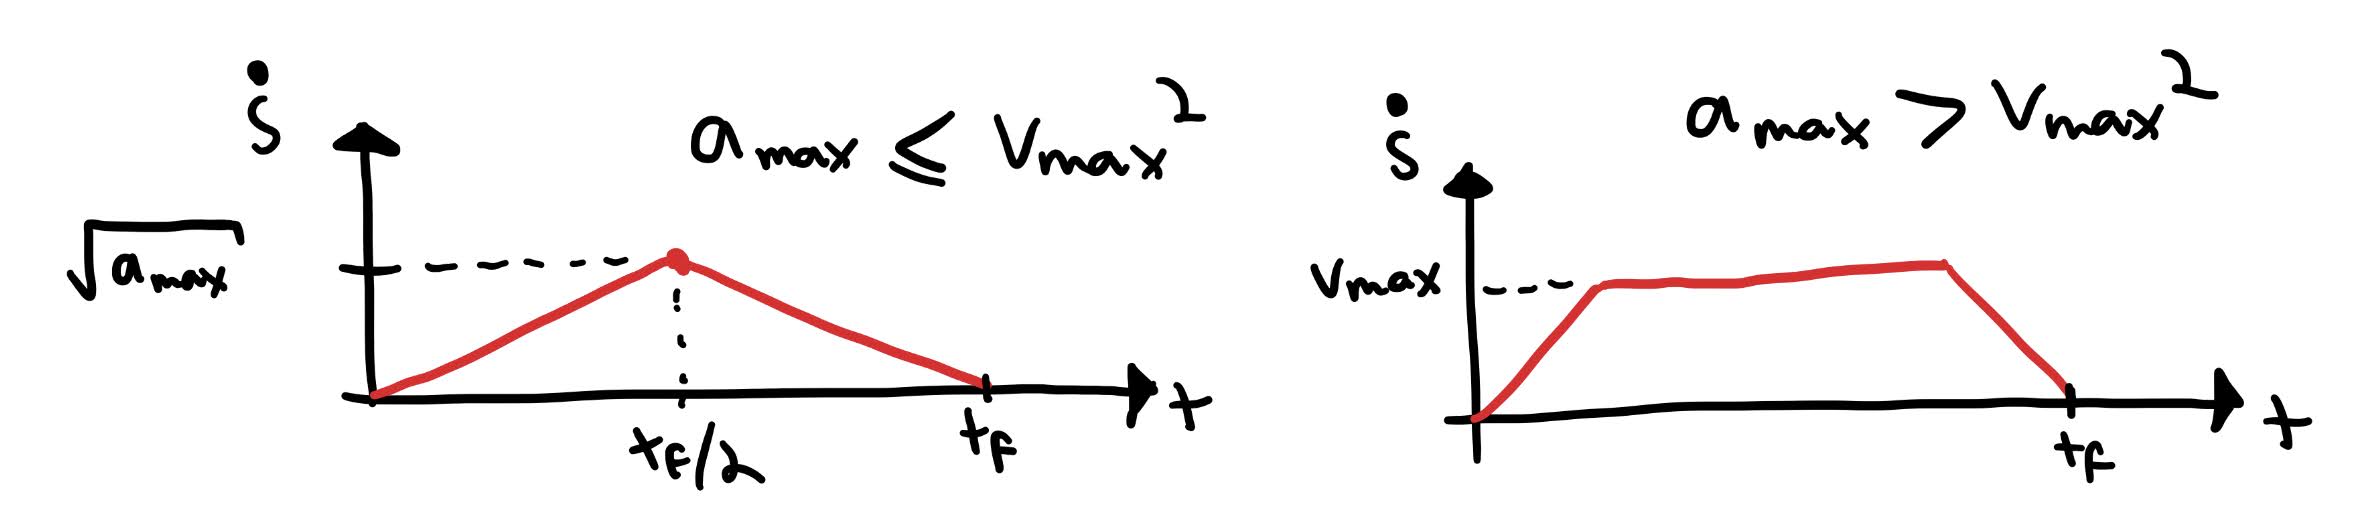 ṡ
a_max ≤ v_max²
√a_max
t_f/2
t_f
t
ṡ
a_max > v_max²
v_max
t_f
t